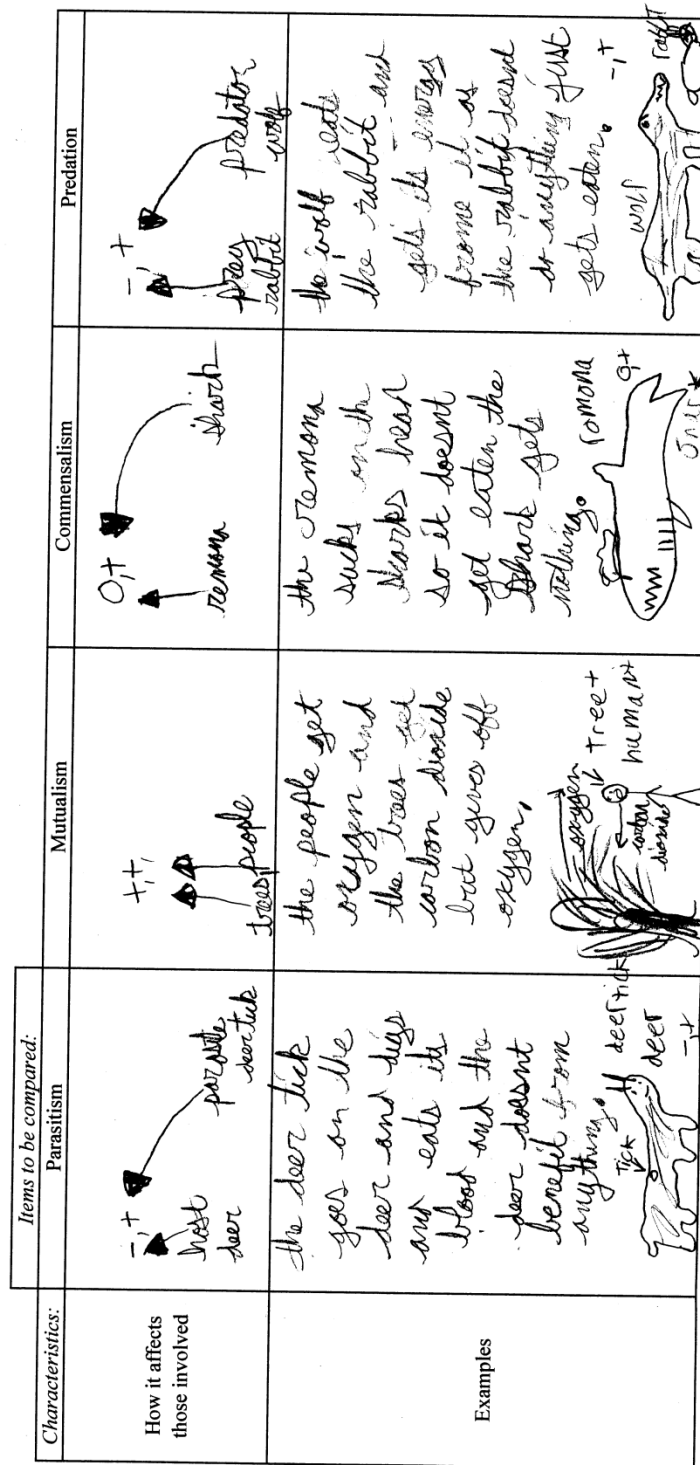 Items to be compared:
Characteristics:
Parasitism
Mutualism
Commensalism
Predation
How it affects
those involved
-, +
host
deer
parasite
deer tick
+,+,
trees,
people
0,+
remona
shark
-, +
prey
rabbit
predator
wolf
Examples
the deer tick
goes on the
deer and digs
and eats its
blood and the
deer doesnt
benefit from
anything.
tick
deer tick
deer
-,+
the people get
oxygen and
the trees get
carbon dioxide
but gives off
oxygen,
oxygen
carbon
dioxide
tree+
human+
the remona
sucks on the
sharks
so it doesnt
get eaten the
shark gets
nothing.
romona
0,+
the wolf eats
the rabbit and
gets its energy
frome it as
the rabbit doesnt
do anything just
gets eaten.
-,+
wolf
rabbit